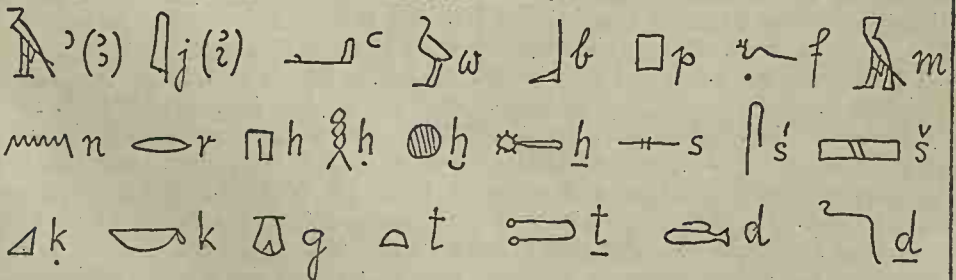 𓄿 ʾ(ꜣ) 𓇋 j(ỉ) 𓂝 ʿ 𓅱 w 𓃀 b 𓊪 p 𓆑 f 𓅓 m
𓈖 n 𓂋 r 𓉔 h 𓎛 ḥ 𓐍 ḫ 𓄡 ẖ 𓊃 s 𓋴 ś 𓈙 š
𓈎 ḳ 𓎡 k 𓎼 g 𓏏 t 𓍿 ṯ 𓂧 d 𓆓 ḏ